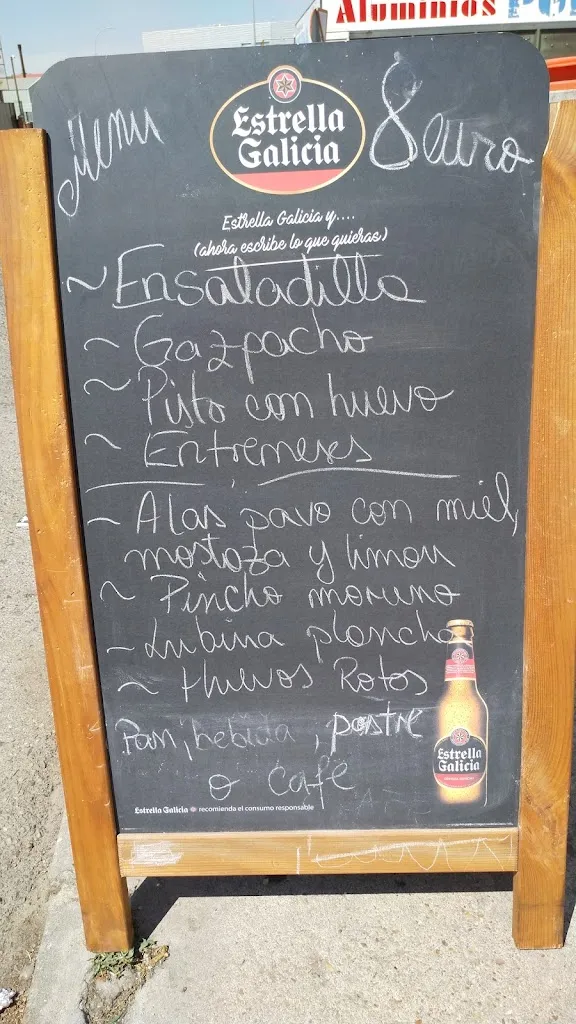 Aluminios
Menu
Estrella
Galicia
8 euro
Estrella Galicia y....
(ahora escribe lo que quieras)
~ Ensaladilla
~ Gazpacho
~ Pisto con huevo
~ Entremeses
~ Alas pavo con miel,
mostaza y limon
~ Pincho moruno
~ Lubina plancha
~ Huevos Rotos
Pan, bebida, postre
o café
Estrella
Galicia
Estrella Galicia recomienda el consumo responsable